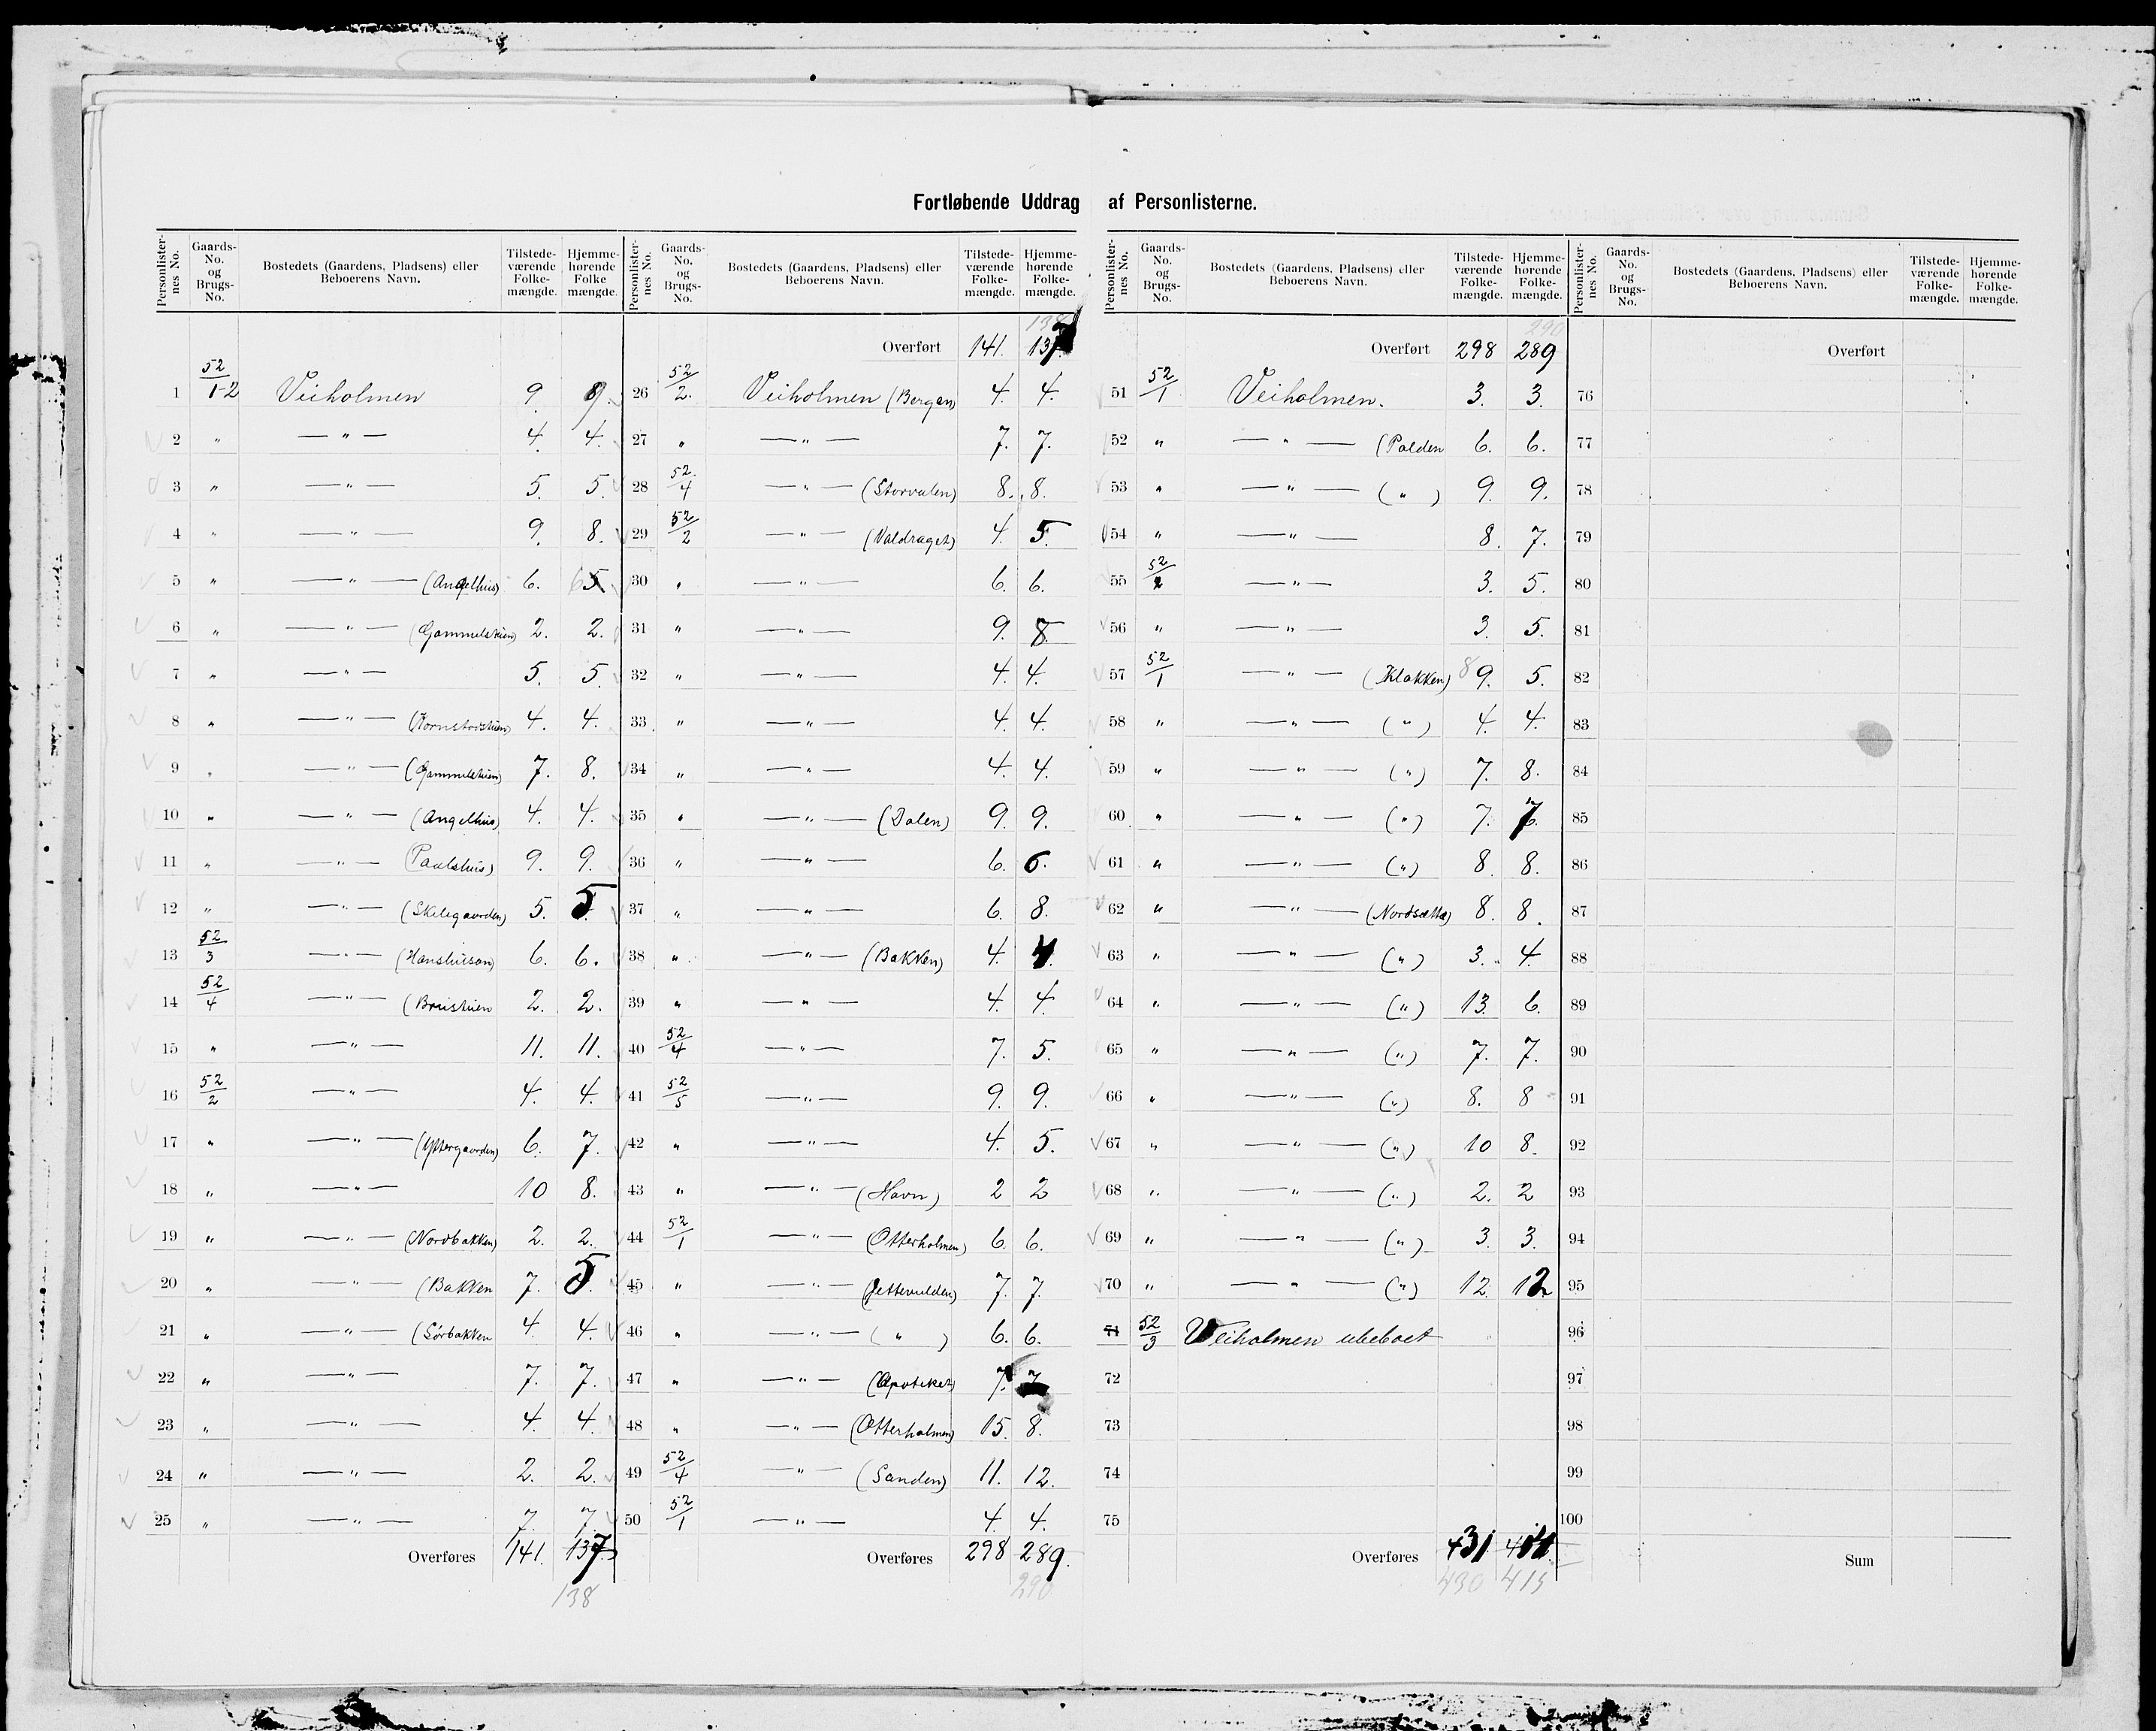 Fortløbende Uddrag af Personlisterne.
Personlister-nes No. | Gaards-No. og Brugs-No. | Bostedets (Gaardens, Pladsens) eller Beboerens Navn. | Tilstede-værende Folke-mængde. | Hjemme-hørende Folke mængde.
1 52/1-2 Veiholmen 9. 9.
2 " — " — 4. 4.
3 " — " — 5. 5.
4 " — " — 9. 8.
5 " — " — (Angelhus) 6. 6
6 " — " — (Gammelstuen) 2. 2.
7 " — " — 5. 5.
8 " — " — 4. 4.
9 " — " — (Gammelstuen) 7. 8.
10 " — " — (Angelhus) 4. 4.
11 " — " — (Paulshus) 9. 9.
12 " — " — (Skilegaarden) 5. 5.
13 52/3 — " — 6. 6.
14 52/4 — " — 2. 2.
15 " — " — 11. 11.
16 52/2 — " — 4. 4.
17 " — " — (Yttergaarden) 6. 7.
18 " — " — 10 8.
19 " — " — (Nordbakken) 2. 2.
20 " — " — (Bakken 7. 5.
21 " — " — (Sørbakken 4. 4.
22 " — " — 7. 7.
23 " — " — 4. 4.
24 " — " — 2. 2.
25 " — " — 7. 7.
Overføres 141. 137
138
Personlister-nes No. | Gaards-No. og Brugs-No. | Bostedets (Gaardens, Pladsens) eller Beboerens Navn. | Tilstede-værende Folke-mængde. | Hjemme-hørende Folke-mængde.
138
Overført 141. 137
26 52/2. Veiholmen (Bergan) 4. 4.
27 " — " — 7. 7.
28 52/4 — " — (Storvalen) 8. 8.
29 52/2 — " — (Valdraget) 4. 5.
30 " — " — 6. 6.
31 " — " — 9. 8.
32 " — " — 4. 4.
33 " — " — 4. 4.
34 " — " — 4. 4.
35 " — " — (Dalen) 9. 9.
36 " — " — 6. 6.
37 " — " — 6. 8.
38 " — " — (Bakken) 4. 4.
39 " — " — 4. 4.
40 52/4 — " — 7. 5.
41 52/5 — " — 9. 9.
42 " — " — 4. 5.
43 " — " — (Havn) 2 2
44 52/1 — " — (Otterholmen) 6. 6.
45 " — " — (Jettevulden) 7. 7.
46 " — " — ( " ) 6. 6.
47 " — " — (Apoteket) 7. 7
48 " — " — (Otterholmen) 15. 8.
49 52/4 — " — (Sanden) 11. 12.
50 52/1 — " — 4. 4.
Overføres 298 289.
290
Personlister-nes No. | Gaards-No. og Brugs-No. | Bostedets (Gaardens, Pladsens) eller Beboerens Navn. | Tilstede-værende Folke-mængde. | Hjemme-hørende Folke-mængde.
290
Overført 298 289
51 52/1 Veiholmen. 3. 3.
52 " — " — (Palden 6. 6.
53 " — " — ( " ) 9. 9.
54 " — " — 8. 7.
55 52/2 — " — 3. 5.
56 " — " — 3. 5.
57 52/1 — " — (Klakken) 8 9. 5.
58 " — " — ( " ) 4. 4.
59 " — " — ( " ) 7. 8.
60 " — " — ( " ) 7. 7.
61 " — " — ( " ) 8. 8.
62 " — " — (Nordsætta) 8. 8.
63 " — " — ( " ) 3. 4.
64 " — " — ( " ) 13. 6.
65 " — " — ( " ) 7. 7.
66 " — " — ( " ) 8. 8
67 " — " — ( " ) 10 8.
68 " — " — ( " ) 2. 2
69 " — " — ( " ) 3. 3.
70 " — " — ( " ) 12. 12
71 52/3 Veiholmen ubeboet
72
73
74
75
Overføres 431
430 415
Personlister-nes No. | Gaards-No. og Brugs-No. | Bostedets (Gaardens, Pladsens) eller Beboerens Navn. | Tilstede-værende Folke-mængde. | Hjemme-hørende Folke-mængde.
Overført
76
77
78
79
80
81
82
83
84
85
86
87
88
89
90
91
92
93
94
95
96
97
98
99
100
Sum